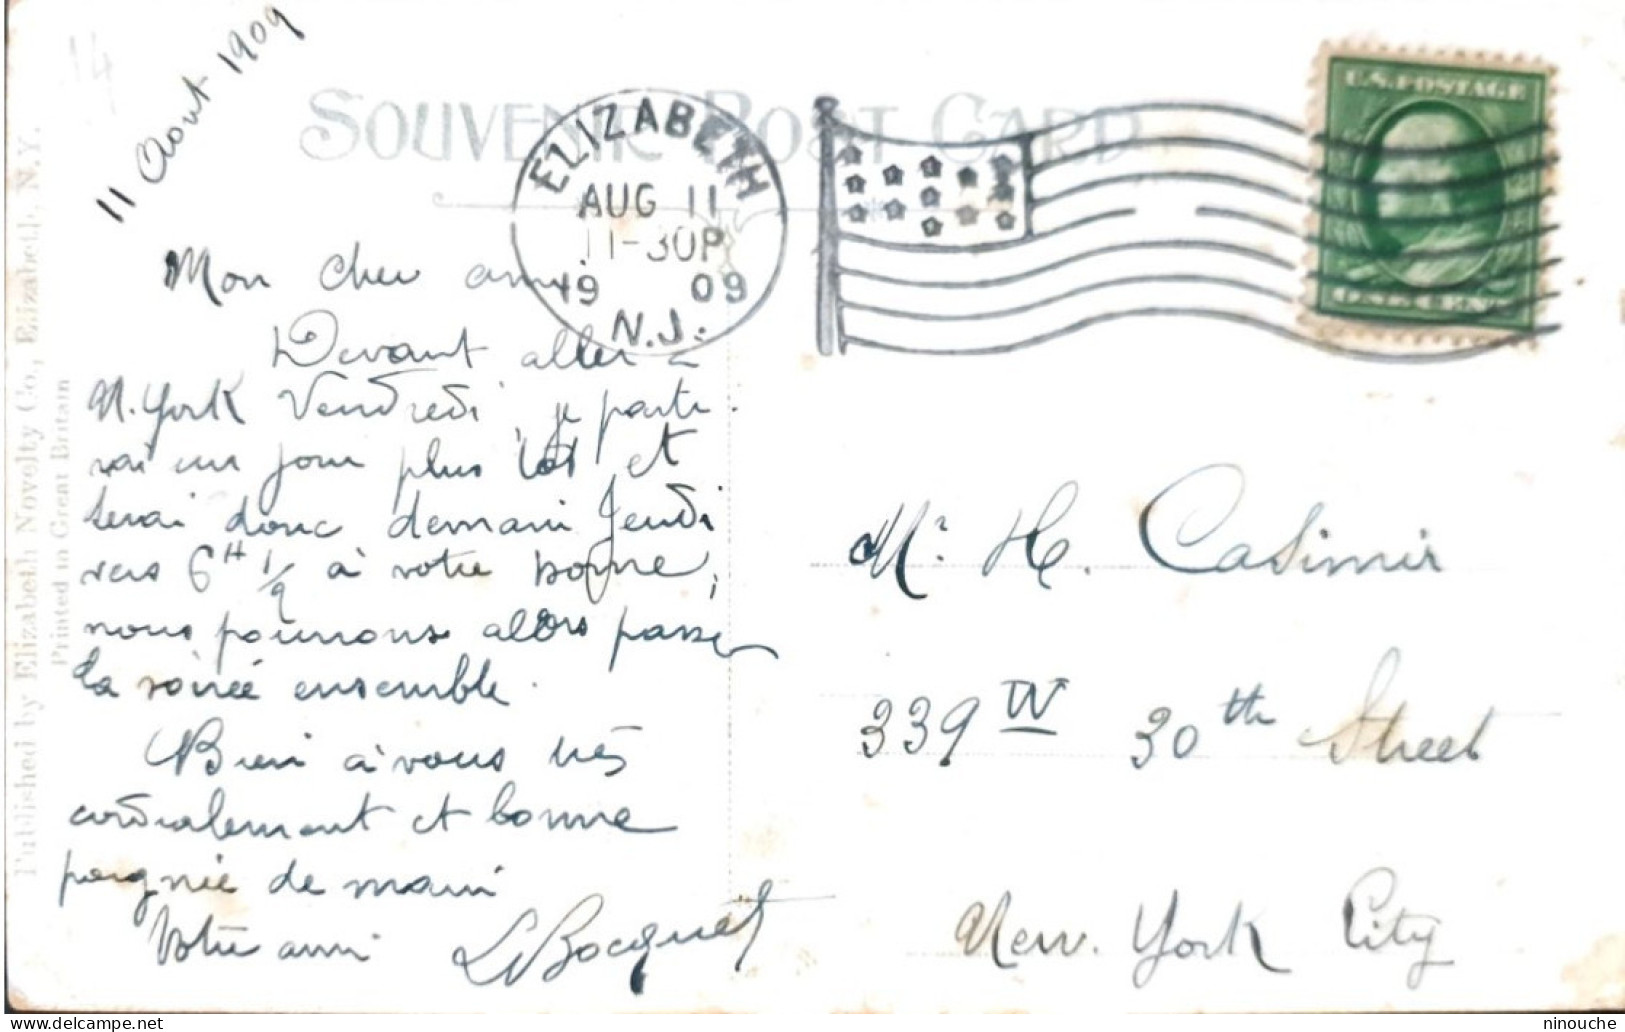 14
11 Aout 1909
SOUVENIR POST CARD
ELIZABETH
AUG 11
11-30P
1909
N.J.
U.S. POSTAGE
Mon cher ami
Devant aller à
N. York Vendredi, je parti-
rai un jour plus tôt et
serai donc demain Jeudi
vers 6H 1/2 à votre
nous pourrons alors passer
la soirée ensemble.
Bien à vous très
cordialement et bonne
poignée de main
Votre ami L Bocquet
Mr. H. Casimir
339 W 30th Street
New. York City
Published by Elizabeth Novelty Co., Elizabeth, N.Y.
Printed in Great Britain
ninouche